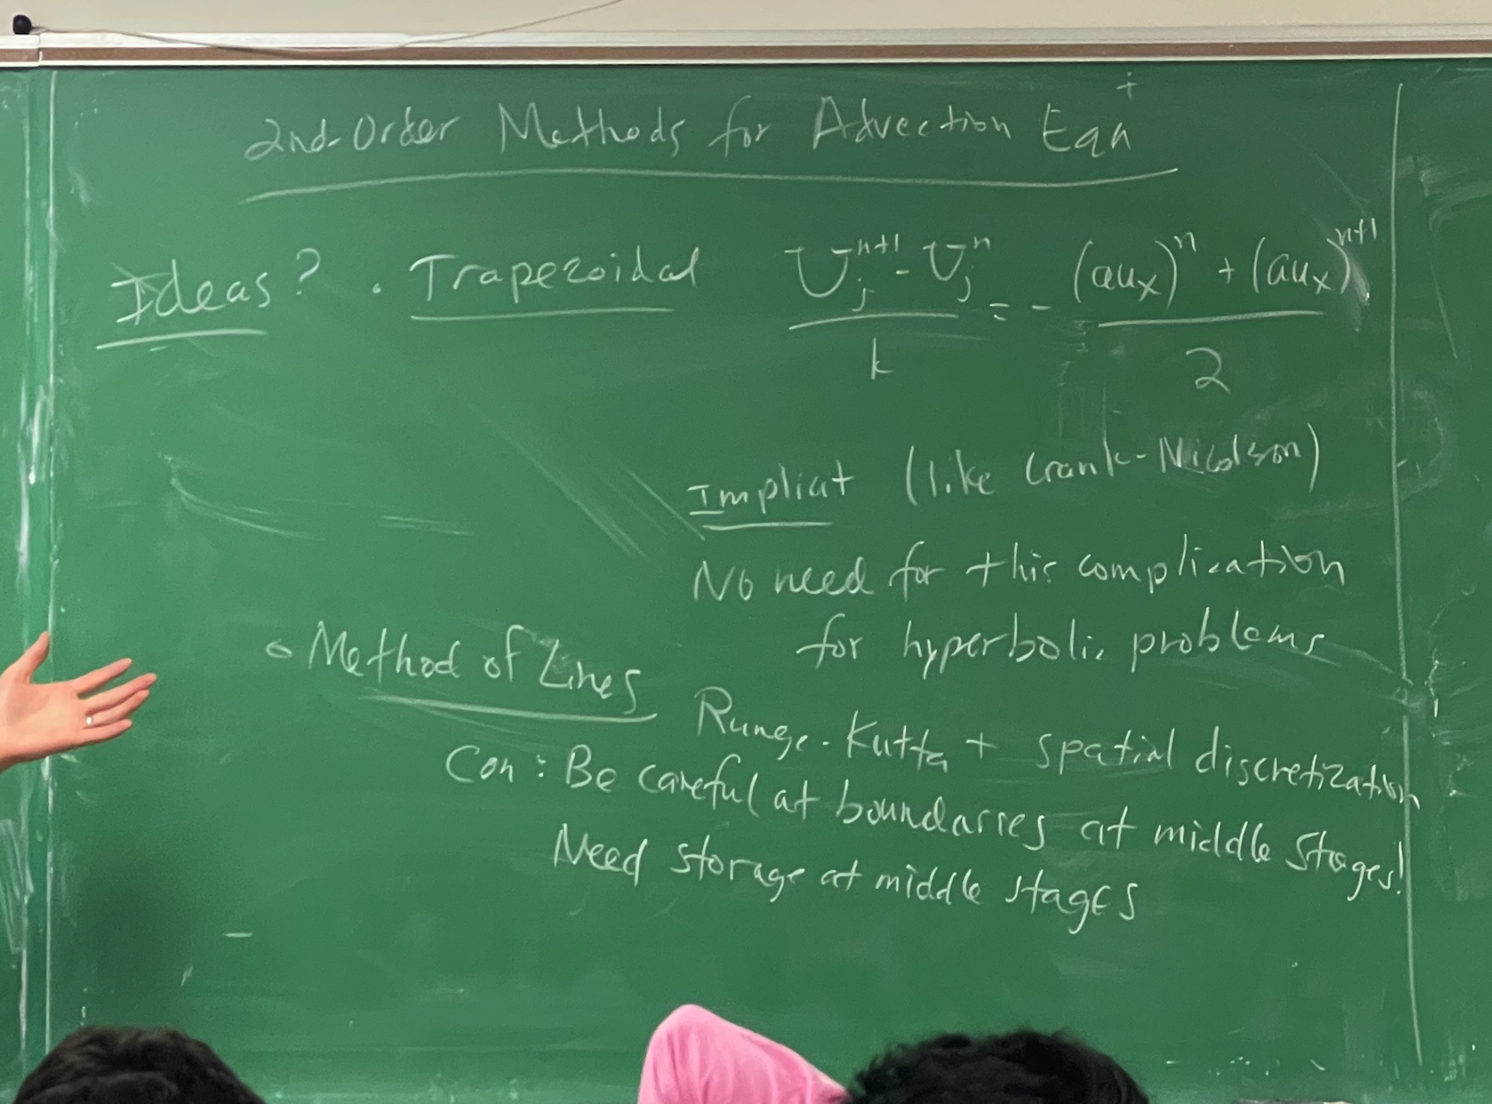 2nd-Order Methods for Advection Eqn
Ideas? • Trapezoidal (U_j^{n+1} - U_j^n)/k = - ((au_x)^n + (au_x)^{n+1})/2
Implicit (like Crank-Nicolson)
No need for this complication
for hyperbolic problems
• Method of Lines
Runge-Kutta + spatial discretization
Con: Be careful at boundaries at middle stages!
Need storage at middle stages